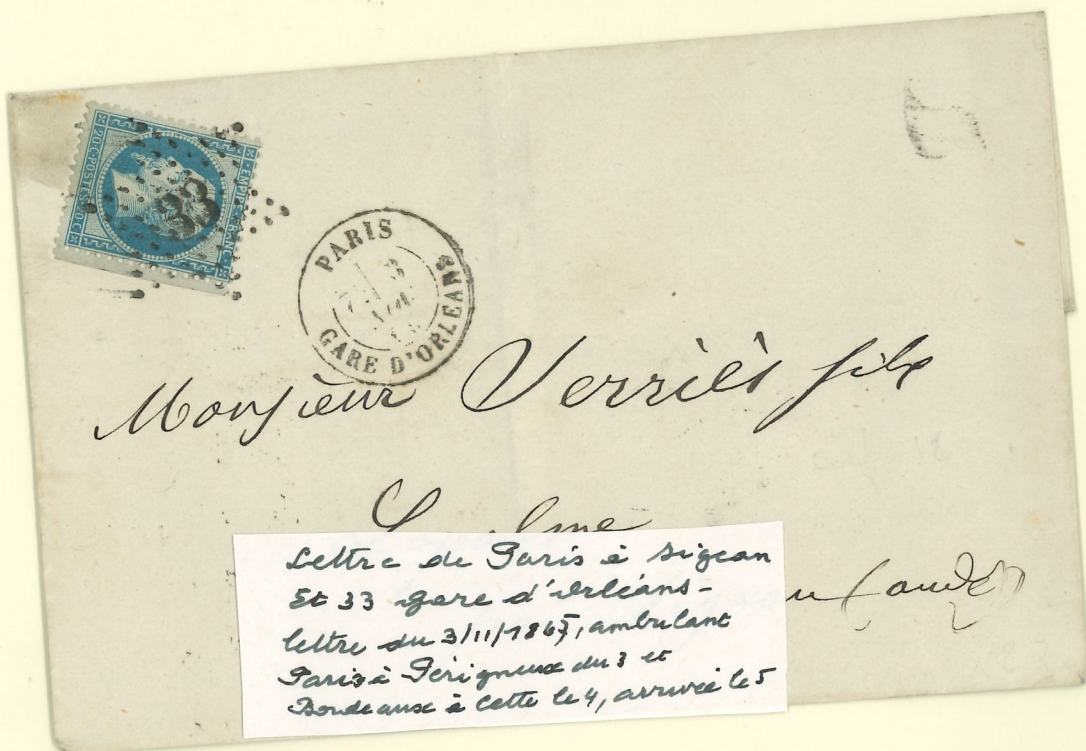 EMPIRE FRANC.
20 C POSTES 20 C
33
PARIS
3
GARE D'ORLEANS
Monsieur Verriès fils
Lettre de Paris à Sigean
Et 33 gare d'Orléans-
lettre du 3/11/1867, ambulant
Paris à Périgueux du 3 et
Bordeaux à Cette le 4, arrivée le 5
(aude)